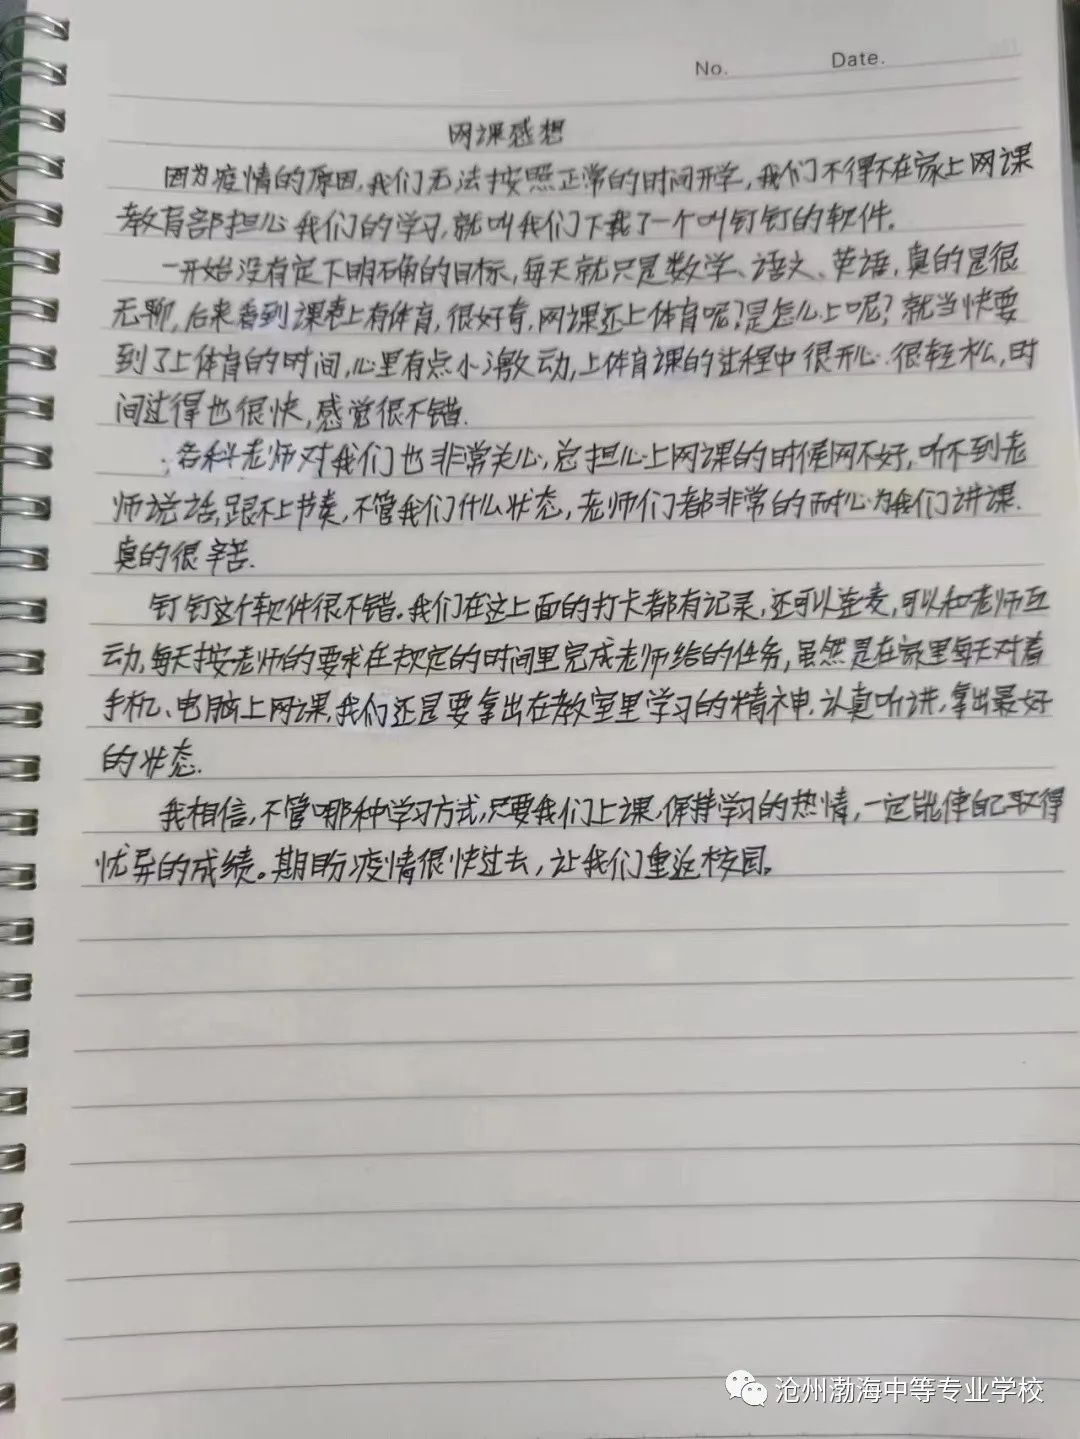 No.
Date.
网课感想
因为疫情的原因,我们无法按照正常的时间开学,我们不得不在家上网课
教育部担心我们的学习,就叫我们下载了一个叫钉钉的软件.
一开始没有定下明确的目标,每天就只是数学、语文、英语,真的是很
无聊,后来看到课表上有体育,很好奇,网课还上体育呢?是怎么上呢?就当快要
到了上体育的时间,心里有点小激动,上体育课的过程中很开心.很轻松,时
间过得也很快,感觉很不错.
各科老师对我们也非常关心,总担心上网课的时候网不好,听不到老
师说话,跟不上节奏,不管我们什么状态,老师们都非常的耐心为我们讲课.
真的很辛苦.
钉钉这个软件很不错.我们在这上面的打卡都有记录,还可以连麦,可以和老师互
动,每天按老师的要求在规定的时间里完成老师给的任务,虽然是在家里每天对着
手机、电脑上网课,我们还是要拿出在教室里学习的精神.认真听讲,拿出最好
的状态.
我相信,不管哪种学习方式,只要我们上课,保持学习的热情,一定能使自己取得
优异的成绩。期盼疫情很快过去,让我们重返校园。
沧州渤海中等专业学校